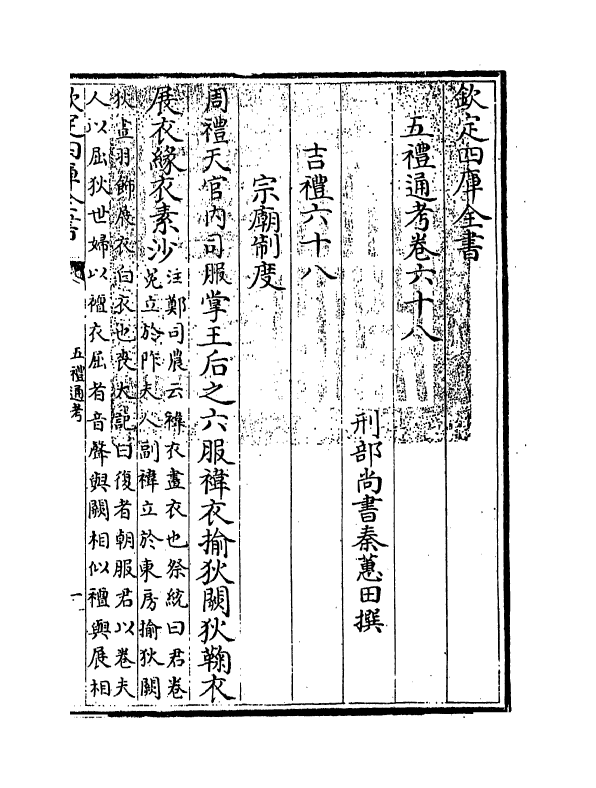 欽定四庫全書
五禮通考卷六十八
刑部尚書秦蕙田撰
吉禮六十八
宗廟制度
周禮天官內司服掌王后之六服褘衣揄狄闕狄鞠衣
展衣緣衣素沙
注鄭司農云褘衣畫衣也祭統曰君卷
冕立於阼夫人副褘立於東房揄狄闕
狄畫羽飾展衣白衣也喪大記曰復者朝服君以卷夫
人以屈狄世婦以襢衣屈者音聲與闕相似襢與展相
欽定四庫全書
五禮通考
一